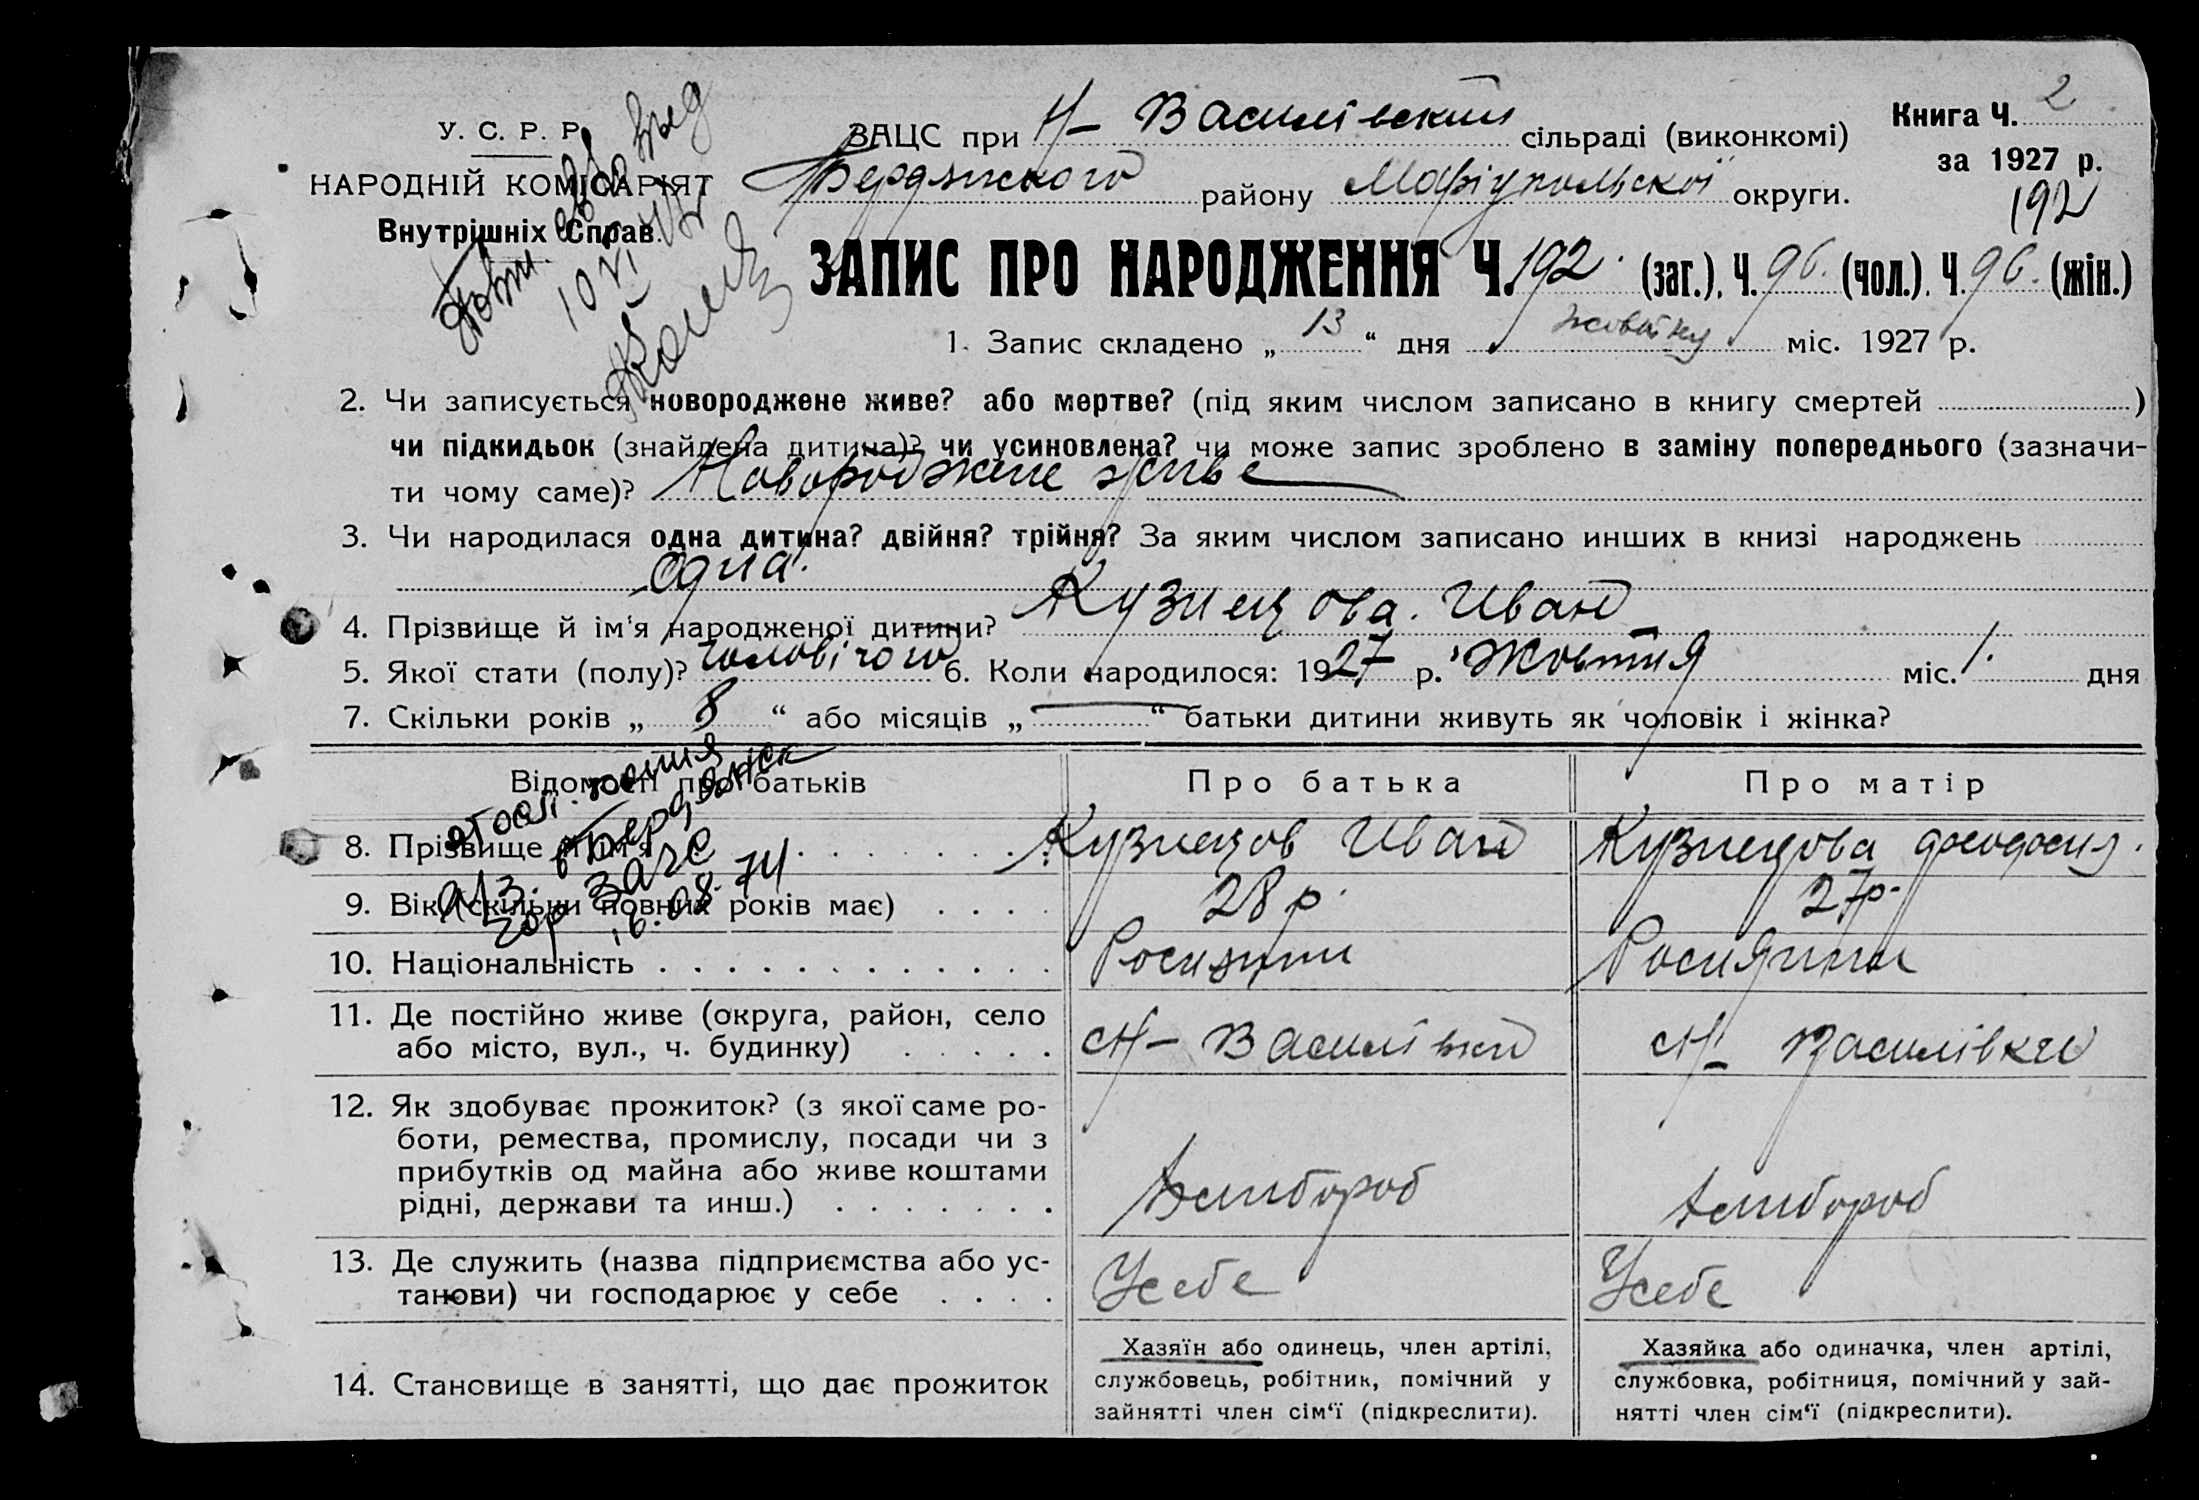 У. С. Р. Р.
НАРОДНІЙ КОМІСАРІЯТ
Внутрішніх Справ.
ЗАЦС при Н-Василівській сільраді (виконкомі)
Бердянского району Маріупольскої округи.
Книга Ч. 2
за 1927 р.
192
ЗАПИС ПРО НАРОДЖЕННЯ Ч. 192. (заг.), Ч. 96. (чол.), Ч. 96. (жін.)
1. Запис складено „ 13 “ дня жовтня міс. 1927 р.
2. Чи записується новороджене живе? або мертве? (під яким числом записано в книгу смертей )
чи підкидьок (знайдена дитина)? чи усиновлена? чи може запис зроблено в заміну попереднього (зазначи-
ти чому саме)? Новороджене живе
3. Чи народилася одна дитина? двійня? трійня? За яким числом записано инших в книзі народжень
одна.
4. Прізвище й ім'я народженої дитини? Кузнецова. Иван
5. Якої стати (полу)? чоловічого 6. Коли народилося: 1927 р. Жовтня міс. 1. дня
7. Скільки років „ 8 “ або місяців „ — “ батьки дитини живуть як чоловік і жінка?
Відомості про батьків Про батька Про матір
Бердянск
ЗАГС
16.08.74
8. Прізвище й ім'я Кузнецов Иван Кузнецова
9. Вік (скільки повних років має) 28 р. 27 р.
10. Національність Росиянин Росиянин
11. Де постійно живе (округа, район, село
або місто, вул., ч. будинку) Н-Василівки Н-Василівки
12. Як здобуває прожиток? (з якої саме ро-
боти, ремества, промислу, посади чи з
прибутків од майна або живе коштами
рідні, держави та инш.) Хлибороб Хлибороб
13. Де служить (назва підприємства або ус-
танови) чи господарює у себе Усебе Усебе
14. Становище в занятті, що дає прожиток
Хазяїн або одинець, член артілі,
службовець, робітник, помічний у
зайнятті член сім‘ї (підкреслити).
Хазяйка або одиначка, член артілі,
службовка, робітниця, помічний у зай-
нятті член сім‘ї (підкреслити).